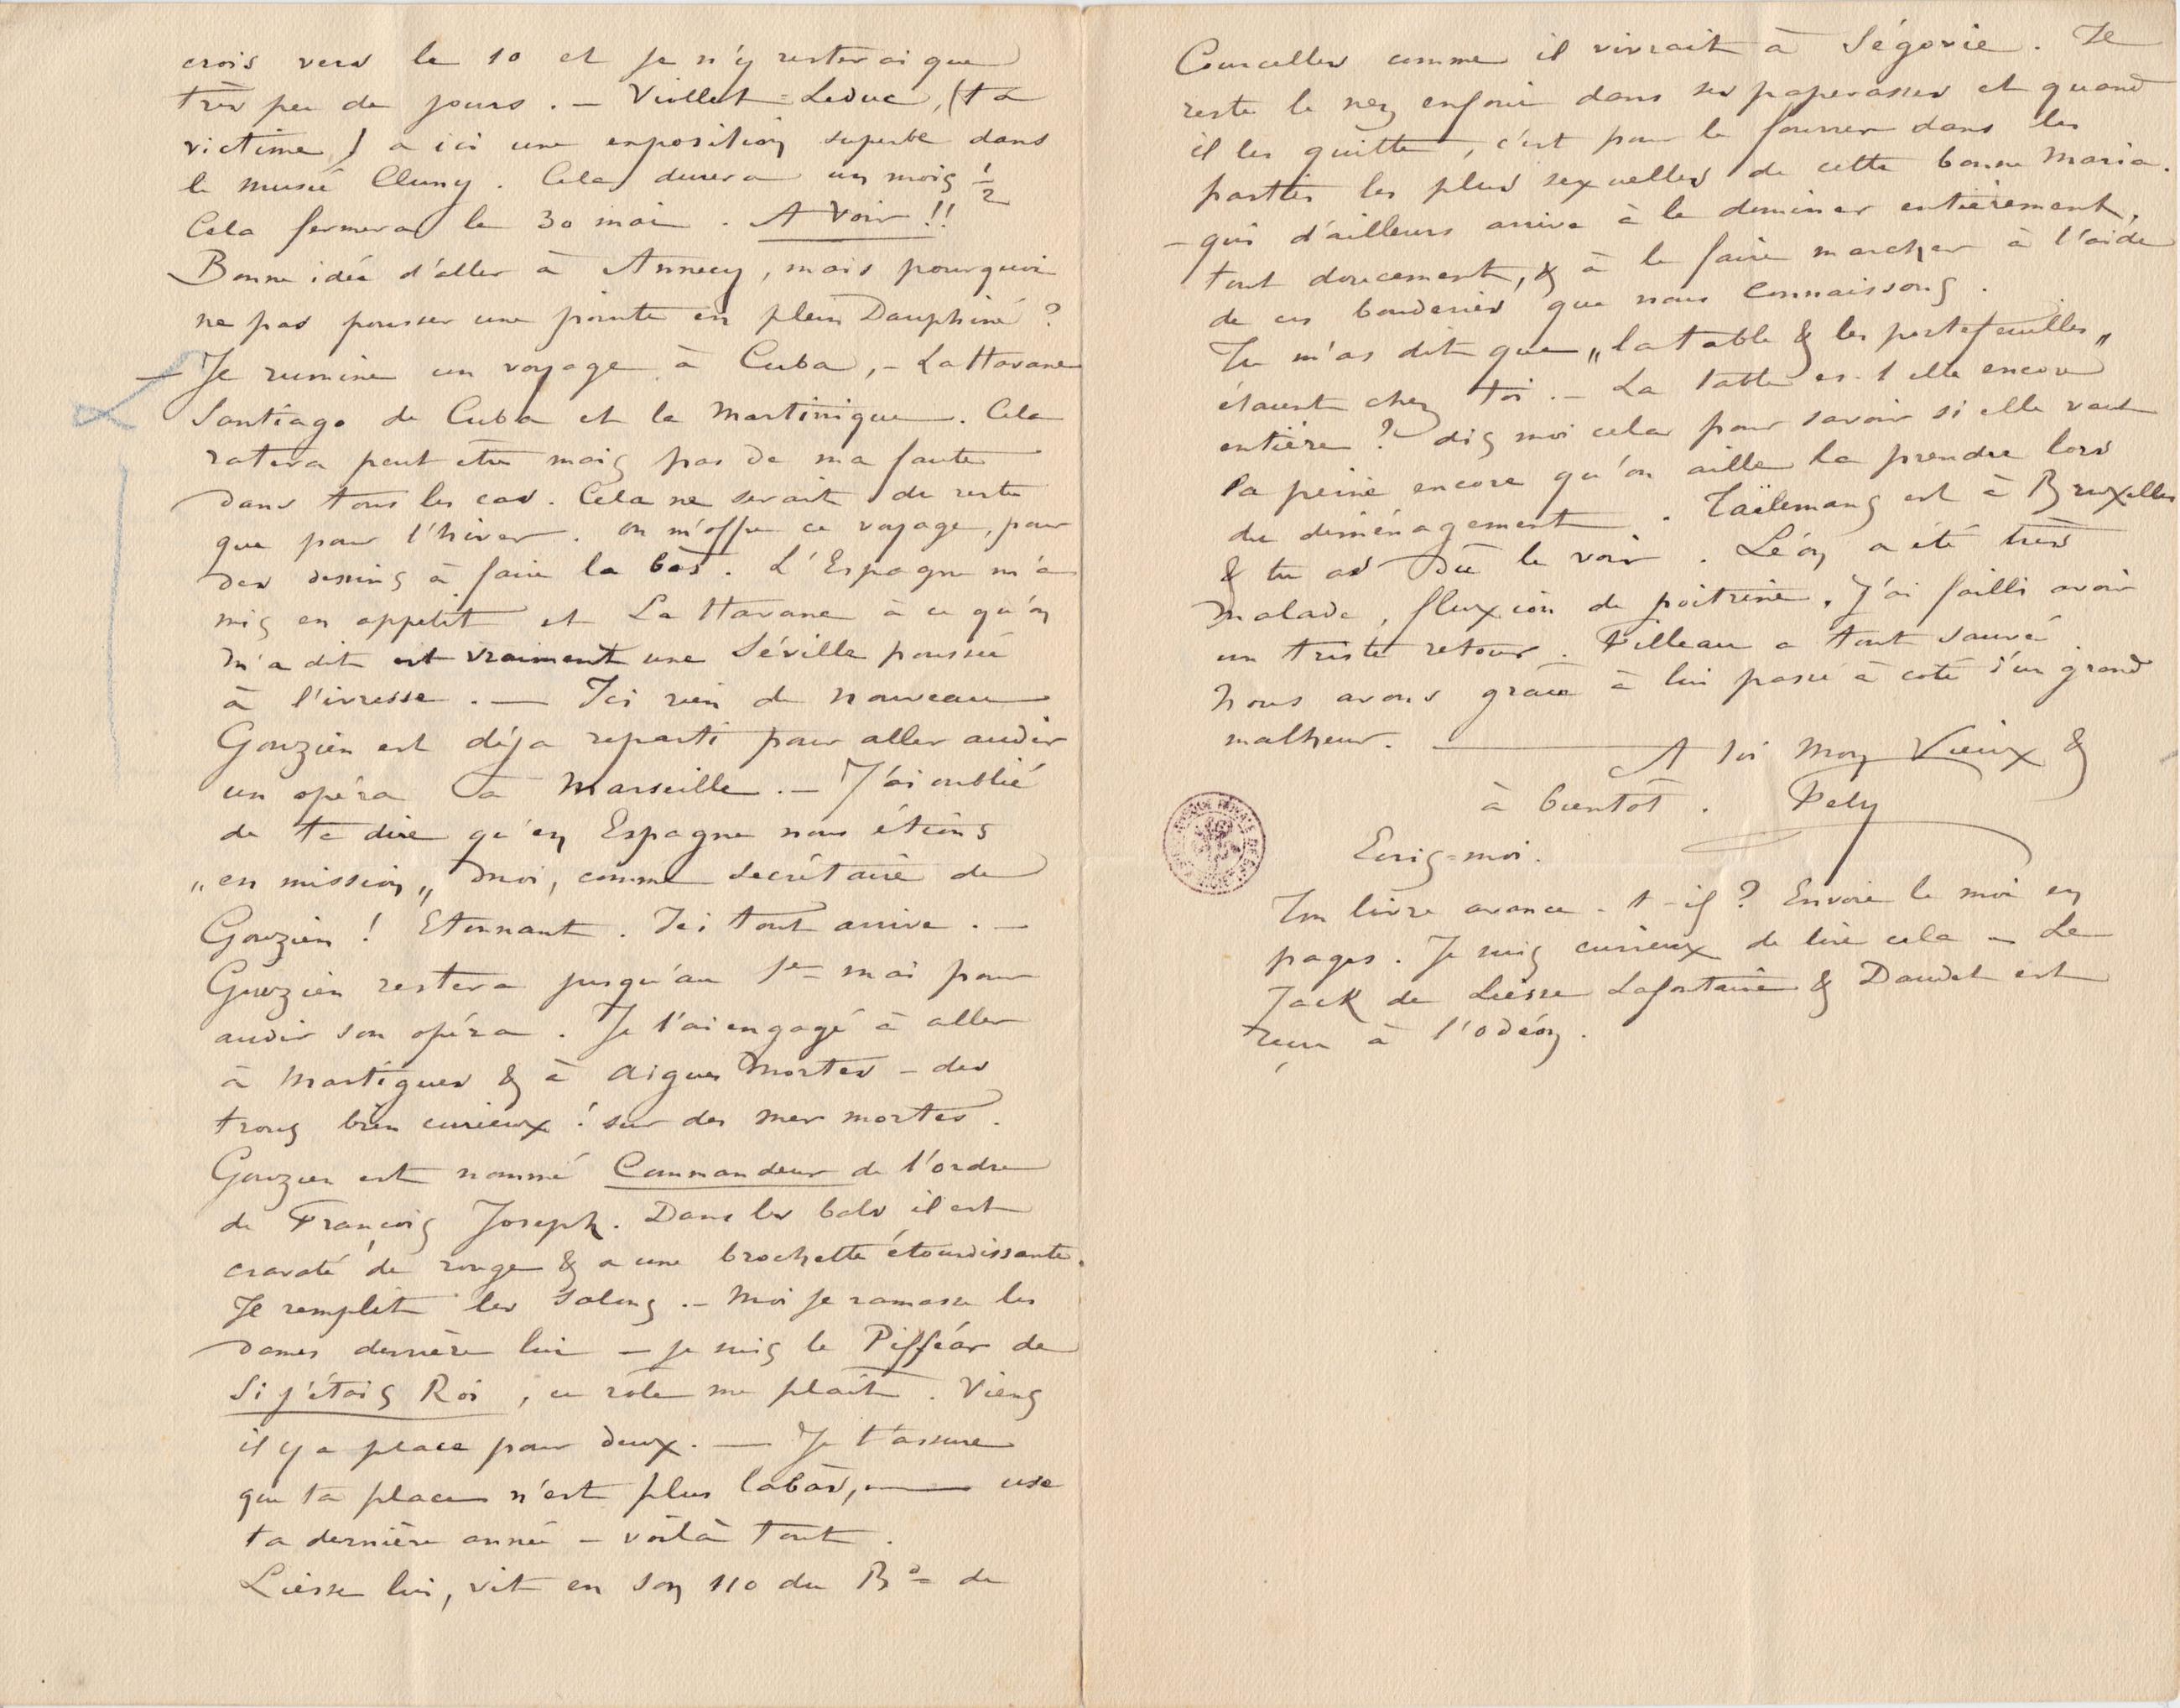 crois vers le 10 et je n'y resterai que
très peu de jours. — Viollet=Leduc, (ta
victime) a ici une exposition superbe dans
le musée Cluny. Cela durera un mois ½
Cela fermera le 30 mai. A Voir!!
Bonne idée d'aller à Annecy, mais pourquoi
ne pas pousser une pointe en plein Dauphiné?
— Je rumine un voyage à Cuba, — La Havane
Santiago de Cuba et la Martinique. Cela
ratera peut etre mais pas de ma faute
dans tous les cas. Cela ne serait du reste
que pour l'hiver. On m'offre ce voyage, pour
des dessins à faire la bas. L'Espagne m'a
mis en appetit et La Havane à ce qu'on
m'a dit est vraiment une Séville poussée
à l'ivresse. — Ici rien de nouveau
Gouzien est déja reparti pour aller audir
un opéra à Marseille. — J'ai oublié
de te dire qu'en Espagne nous étions
„en mission„ moi, comme secrétaire de
Gouzien! Etonnant. Ici tout arrive. —
Gouzien restera jusqu'au 1er mai pour
audir son opéra. Je l'ai engagé à aller
à Martigues & à Aigues Mortes — des
trous bien curieux! sur des mer mortes.
Gouzien est nommé Commandeur de l'ordre
de François Joseph. Dans les bals il est
cravaté de rouge & a une brochette étourdissante.
Il remplit les salons. — Moi je ramasse les
dames derrière lui — je suis le Pifféar de
Si j'étais Roi, ce role me plait. Viens
il y a place pour deux. — Je t'assure
que ta place n'est plus labas, — use
ta dernière année — voilà tout.
Liesse lui, vit en son 110 du Bd de
Courcelles comme il vivrait à Ségovie. Il
reste le nez enfoui dans ses paperasses et quand
il les quitte, c'est pour le fourrer dans les
parties les plus sexuelles de cette bonne Maria.
— qui d'ailleurs arrive à le dominer entièrement,
tout doucement, & à le faire marcher à l'aide
de ces bouderies que nous connaissons.
Tu m'as dit que „la table & les portefeuilles„
étaient chez toi. — La table est elle encore
entière? dis moi cela pour savoir si elle vaut
la peine encore qu'on aille la prendre lors
du deménagement. Taëlemans est à Bruxelles
& tu as dû le voir. Léon a été très
malade, fluxion de poitrine. J'ai failli avoir
un triste retour. Filleau a tout sauvé
Nous avons grace à lui passé à coté d'un grand
malheur. — A toi mon Vieux &
à bientôt. Fely
Ecris=moi.
Ton livre avance-t-il? Envoie le moi en
pages. Je suis curieux de lire cela — Le
Jack de Liesse Lafontaine & Daudet est
reçu à l'Odéon.